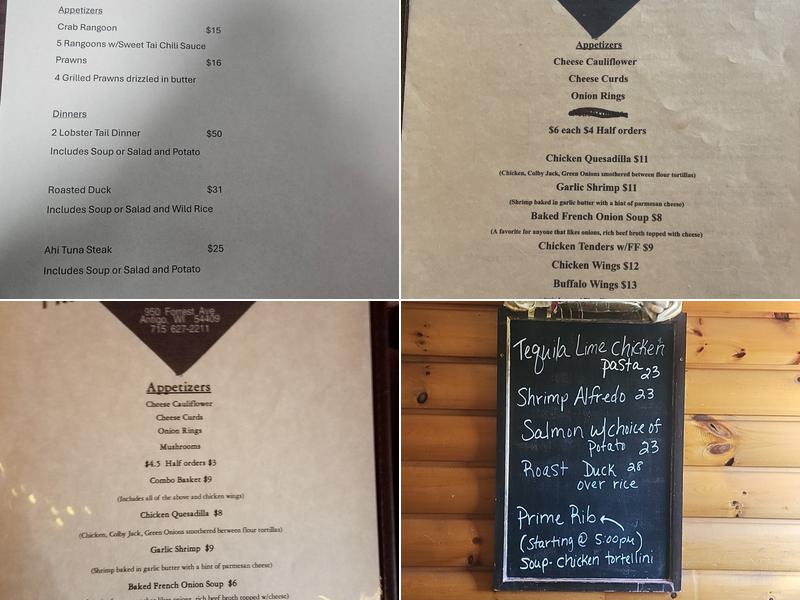 Appetizers
Crab Rangoon $15
5 Rangoons w/Sweet Tai Chili Sauce
Prawns $16
4 Grilled Prawns drizzled in butter
Dinners
2 Lobster Tail Dinner $50
Includes Soup or Salad and Potato
Roasted Duck $31
Includes Soup or Salad and Wild Rice
Ahi Tuna Steak $25
Includes Soup or Salad and Potato
Appetizers
Cheese Cauliflower
Cheese Curds
Onion Rings
$6 each $4 Half orders
Chicken Quesadilla $11
(Chicken, Colby Jack, Green Onions smothered between flour tortillas)
Garlic Shrimp $11
(Shrimp baked in garlic butter with a hint of parmesan cheese)
Baked French Onion Soup $8
(A favorite for anyone that likes onions, rich beef broth topped with cheese)
Chicken Tenders w/FF $9
Chicken Wings $12
Buffalo Wings $13
950 Forrest Ave
Antigo, WI 54409
715 627-2211
Appetizers
Cheese Cauliflower
Cheese Curds
Onion Rings
Mushrooms
$4.5 Half orders $3
Combo Basket $9
(Includes all of the above and chicken wings)
Chicken Quesadilla $8
(Chicken, Colby Jack, Green Onions smothered between flour tortillas)
Garlic Shrimp $9
(Shrimp baked in garlic butter with a hint of parmesan cheese)
Baked French Onion Soup $6
likes onions, rich beef broth topped w/cheese)
Tequila Lime Chicken
pasta 23
Shrimp Alfredo 23
Salmon w/choice of
potato 23
Roast Duck 28
over rice
Prime Rib
(Starting @ 5:00pm)
Soup- chicken tortellini